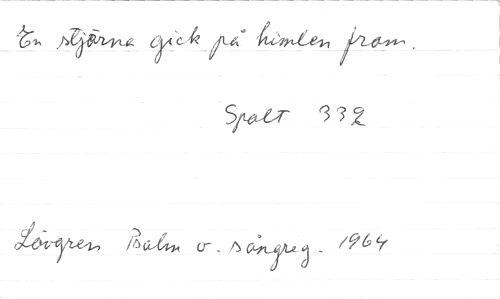 En stjärna gick på himlen fram.
Spalt 332
Lövgren Psalm o. sångreg. 1964